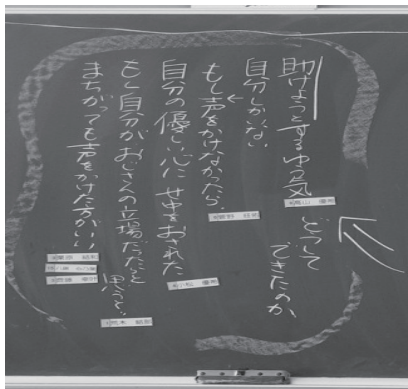 助けようとする勇気
どうして
できたのか
自分しかいない
もし声をかけなかったら、
自分の優しい心に背中をおされた
もし自分がおじさんの立場だったらと
思うと、
まちがっても声をかけた方がいい